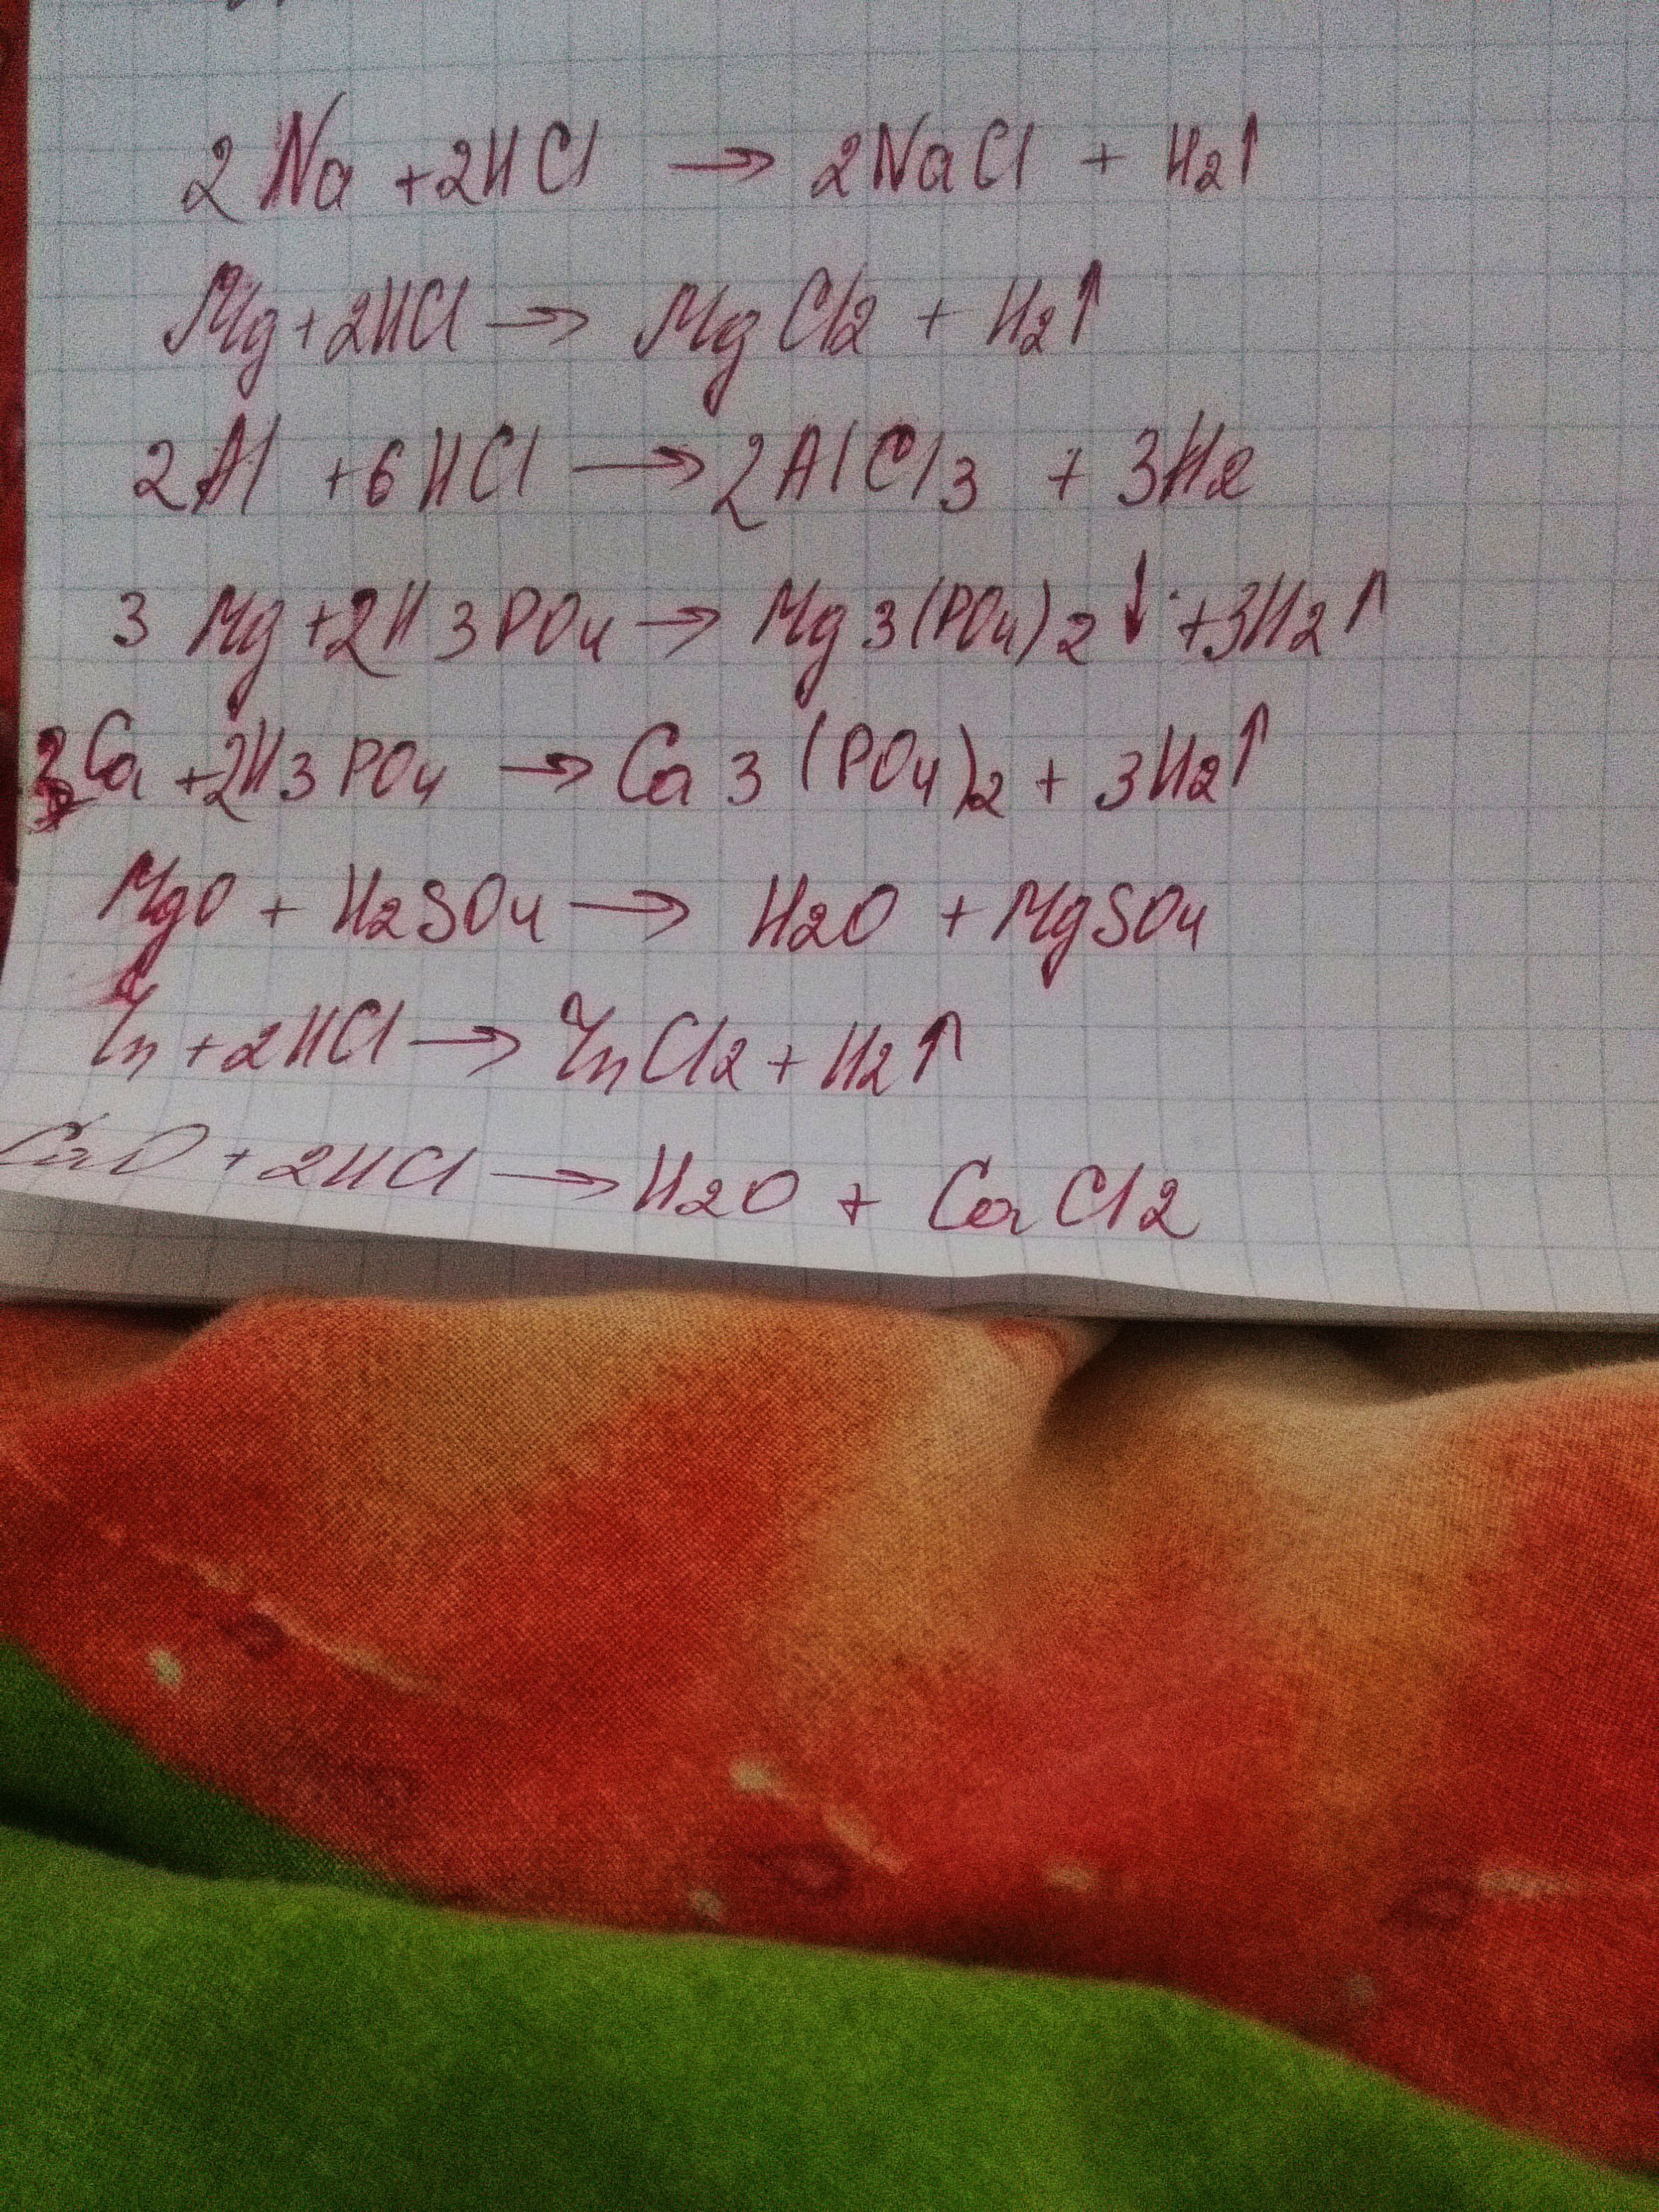 2Na + 2HCl → 2NaCl + H2↑
Mg + 2HCl → MgCl2 + H2↑
2Al + 6HCl → 2AlCl3 + 3H2
3Mg + 2H3PO4 → Mg3(PO4)2↓ + 3H2↑
3Ca + 2H3PO4 → Ca3(PO4)2 + 3H2↑
MgO + H2SO4 → H2O + MgSO4
Zn + 2HCl → ZnCl2 + H2↑
CaO + 2HCl → H2O + CaCl2